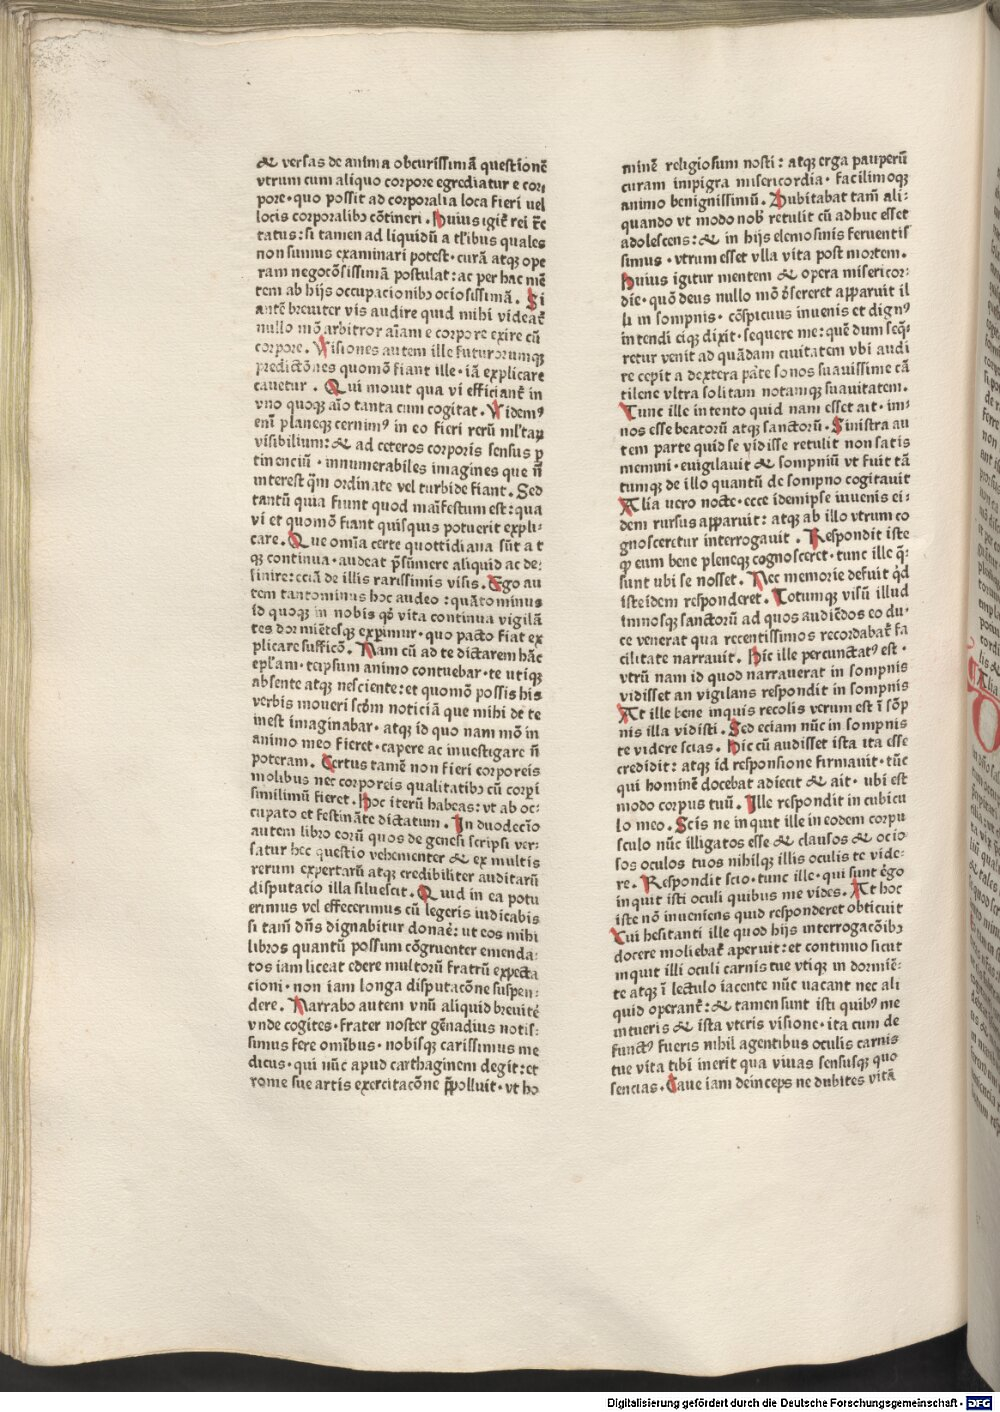 & versas de anima obcurissimā questionē
vtrum cum aliquo corpore egrediatur e cor⸗
pore · quo possit ad corporalia loca fieri uel
locis corporalibꝫ cōtineri . Huius igit᷑ rei tr̄c
tatus : si tamen ad liquidū a tl̓ibus quales
non sumus examinari potest · curā atqꝫ ope
ram negocōsissimā postulat : ac per hac mē
tem ab hijs occupacionibꝫ ociosissimā . Si
antē breuiter vis audire quid mihi videat᷑
nullo mō arbitror aīam e corpore exire cū
corpore . Visiones autem ille futurorumqꝫ
predictōnes quomō fiant ille · iā explicare
cauetur . Qui mouit qua vi efficiant᷑ in
vno quoqꝫ aīo tanta cum cogitat . Videmꝰ
enī planeqꝫ cernimꝰ in eo fieri rerū ml̓taꝝ
visibilium : & ad ceteros corporis sensus ꝑ
tinenciū · innumerabiles imagines que nō
interest qm̄ ordinate vel turbide fiant . Sed
tantū quia fiunt quod maīfestum est : qua
vi et quomō fiant quisquis potuerit expli⸗
care . Que omīa certe quottidiana sūt a t
qꝫ continua · audeat p̄sūmere aliquid ac de⸗
finire : eciā de illis rarissimis visis . Ego au
tem tantominus hoc audeo : quāto minus
id quoqꝫ in nobis qd̓ vita continua vigilā
tes dormiētesqꝫ exꝑimur · quo pacto fiat ex
plicare sufficō . Nam cū ad te dictarem hāc
epl̓am · teipsum animo contuebar · te utiqꝫ
absente atqꝫ nesciente : et quomō possis his
verbis moueri scdm noticiā que mihi de te
inest imaginabar · atqꝫ id quo nam mō in
animo meo fieret · capere ac inuestigare nō
poteram . Certus tamē non fieri corporeis
molibus nec corporeis qualitatibꝫ cū corpi
similimū fieret . Hoc iterū habeas : vt ab oc⸗
cupato et festināte dictatum . In duodecīo
autem libro eorū quos de genesi scripsi ver⸗
satur hec questio vehementer & ex multis
rerum expertarū atqꝫ credibiliter auditarū
disputacio illa siluescit . Quid in ea potu
erimus vel effecerimus cū legeris iudicabis
si tam̄ dn̄s dignabitur donaē : ut eos mihi
libros quantū possum cōgruenter emenda⸗
tos iam liceat edere multorū fratrū expecta
cioni · non iam longa disputacōne suspen⸗
dere . Narrabo autem vnū aliquid breuitē
vnde cogites · frater noster gēnadius notis⸗
simus fere omībus · nobisqꝫ carissimus me
dicus · qui nūc apud carthaginem degit : et
rome sue artis exercitacōne p̄polluit · vt ho
minē religiosum nosti : atqꝫ erga pauperū
curam impigra misericordia · facilimoqꝫ
animo benignissimū . Dubitabat tam̄ ali⸗
quando vt modo nob̓ retulit cū adhuc esset
adolescens : & in hijs elemosinis feruentis
simus · vtrum esset vlla vita post mortem .
Huius igitur mentem & opera misericor⸗
die · quō deus nullo mō dēsereret apparuit il
li in sompnis · cōspicuus iuuenis et dignꝰ
intendi eiqꝫ dixit · sequere me : quē dum seq̄⸗
retur venit ad quādam ciuitatem vbi audi
re cepit a dextera pāte sonos suauissime cā
tilene vltra solitam notamqꝫ suauitatem .
Tunc ille intento quid nam esset ait · im⸗
nos esse beatorū atqꝫ sanctorū . Sinistra au
tem parte quid se vidisse retulit non satis
memini · euigilauit & sompniū vt fuit tā
tumqꝫ de illo quantū de sompno cogitauit
Alia uero nocte · ecce idemipse iuuenis ei⸗
dem rursus apparuit : atqꝫ ab illo vtrum co
gnosceretur interrogauit . Respondit iste
ꝙ eum bene pleneqꝫ cognosceret · tunc ille q̄⸗
siunt ubi se nosset . Nec memorie defuit qd̓
iste idem responderet . Totumqꝫ visū illud
imnosqꝫ sanctorū ad quos audiēdos eo du⸗
ce venerat qua recentissimos recordabat᷑ fa
cilitate narrauit . Hic ille percunctatꝰ est ·
vtrū nam id quod narrauerat in sompnis
vidisset an vigilans respondit in sompnis
At ille bene inquis recolis verum est ī sōp
nis illa vidisti . Sed eciam nūc in sompnis
te videre scias . Hic cū audisset ista ita esse
credidit : atqꝫ id responsione firmauit · tūc
qui hominē docebat adiecit & ait · ubi est
modo corpus tuū . Ille respondit in cubicu
lo meo . Scis ne inquit ille in eodem corpu
sculo nūc illigatos esse & clausos & ocio
sos oculos tuos nihilqꝫ illis oculis te vide⸗
re . Respondit scio · tunc ille · qui sunt ērgo
inquit isti oculi quibus me vides . At hoc
iste nō inueniens quid responderet obticuit
Cui hesitanti ille quod hijs interrogacōibꝫ
docere moliebat᷑ aperuit : et continuo sicut
inquit illi oculi carnis tue vtiqꝫ in dormiē⸗
te atqꝫ ī lectulo iacente nūc uacant nec ali
quid operant᷑ : & tamen sunt isti quibꝰ me
intueris & ista vteris visione · ita cum de
functꝰ fueris nihil agentibus oculis carnis
tue vita tibi inerit qua viuas sensusqꝫ quo
sencias . Caue iam deinceps ne dubites vitā
Digitalisierung gefördert durch die Deutsche Forschungsgemeinschaft - DFG